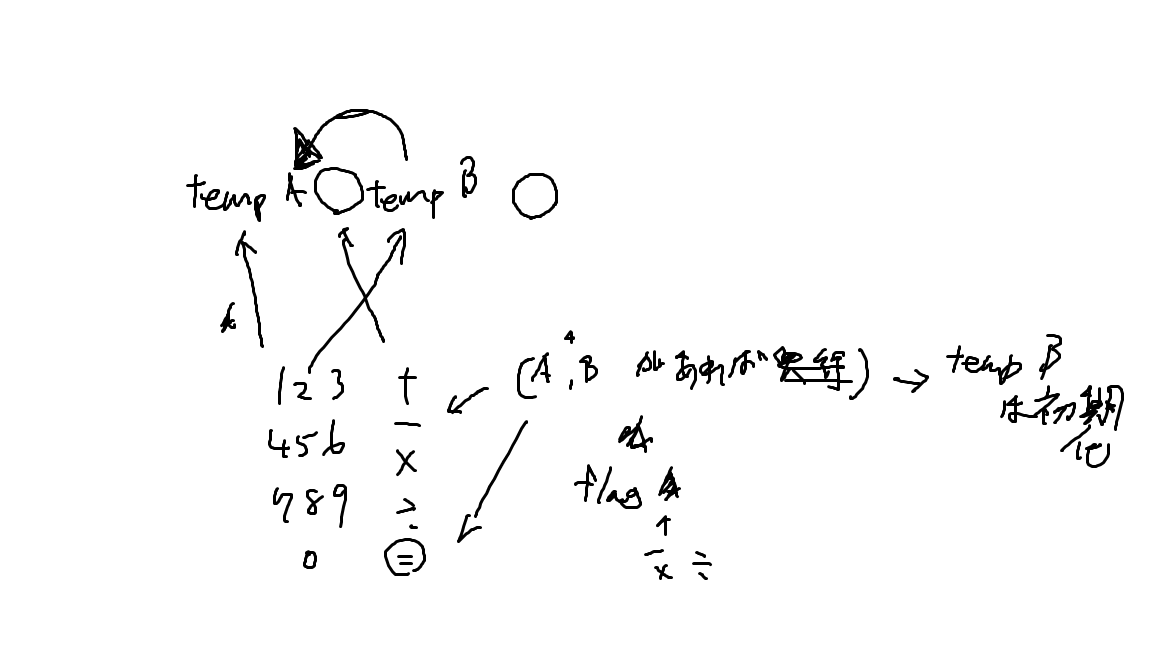 temp A temp B
1 2 3 +
4 5 6 −
×
7 8 9 ÷
0 =
(A, B があれば
temp B
は初期化
flag
+
− × ÷